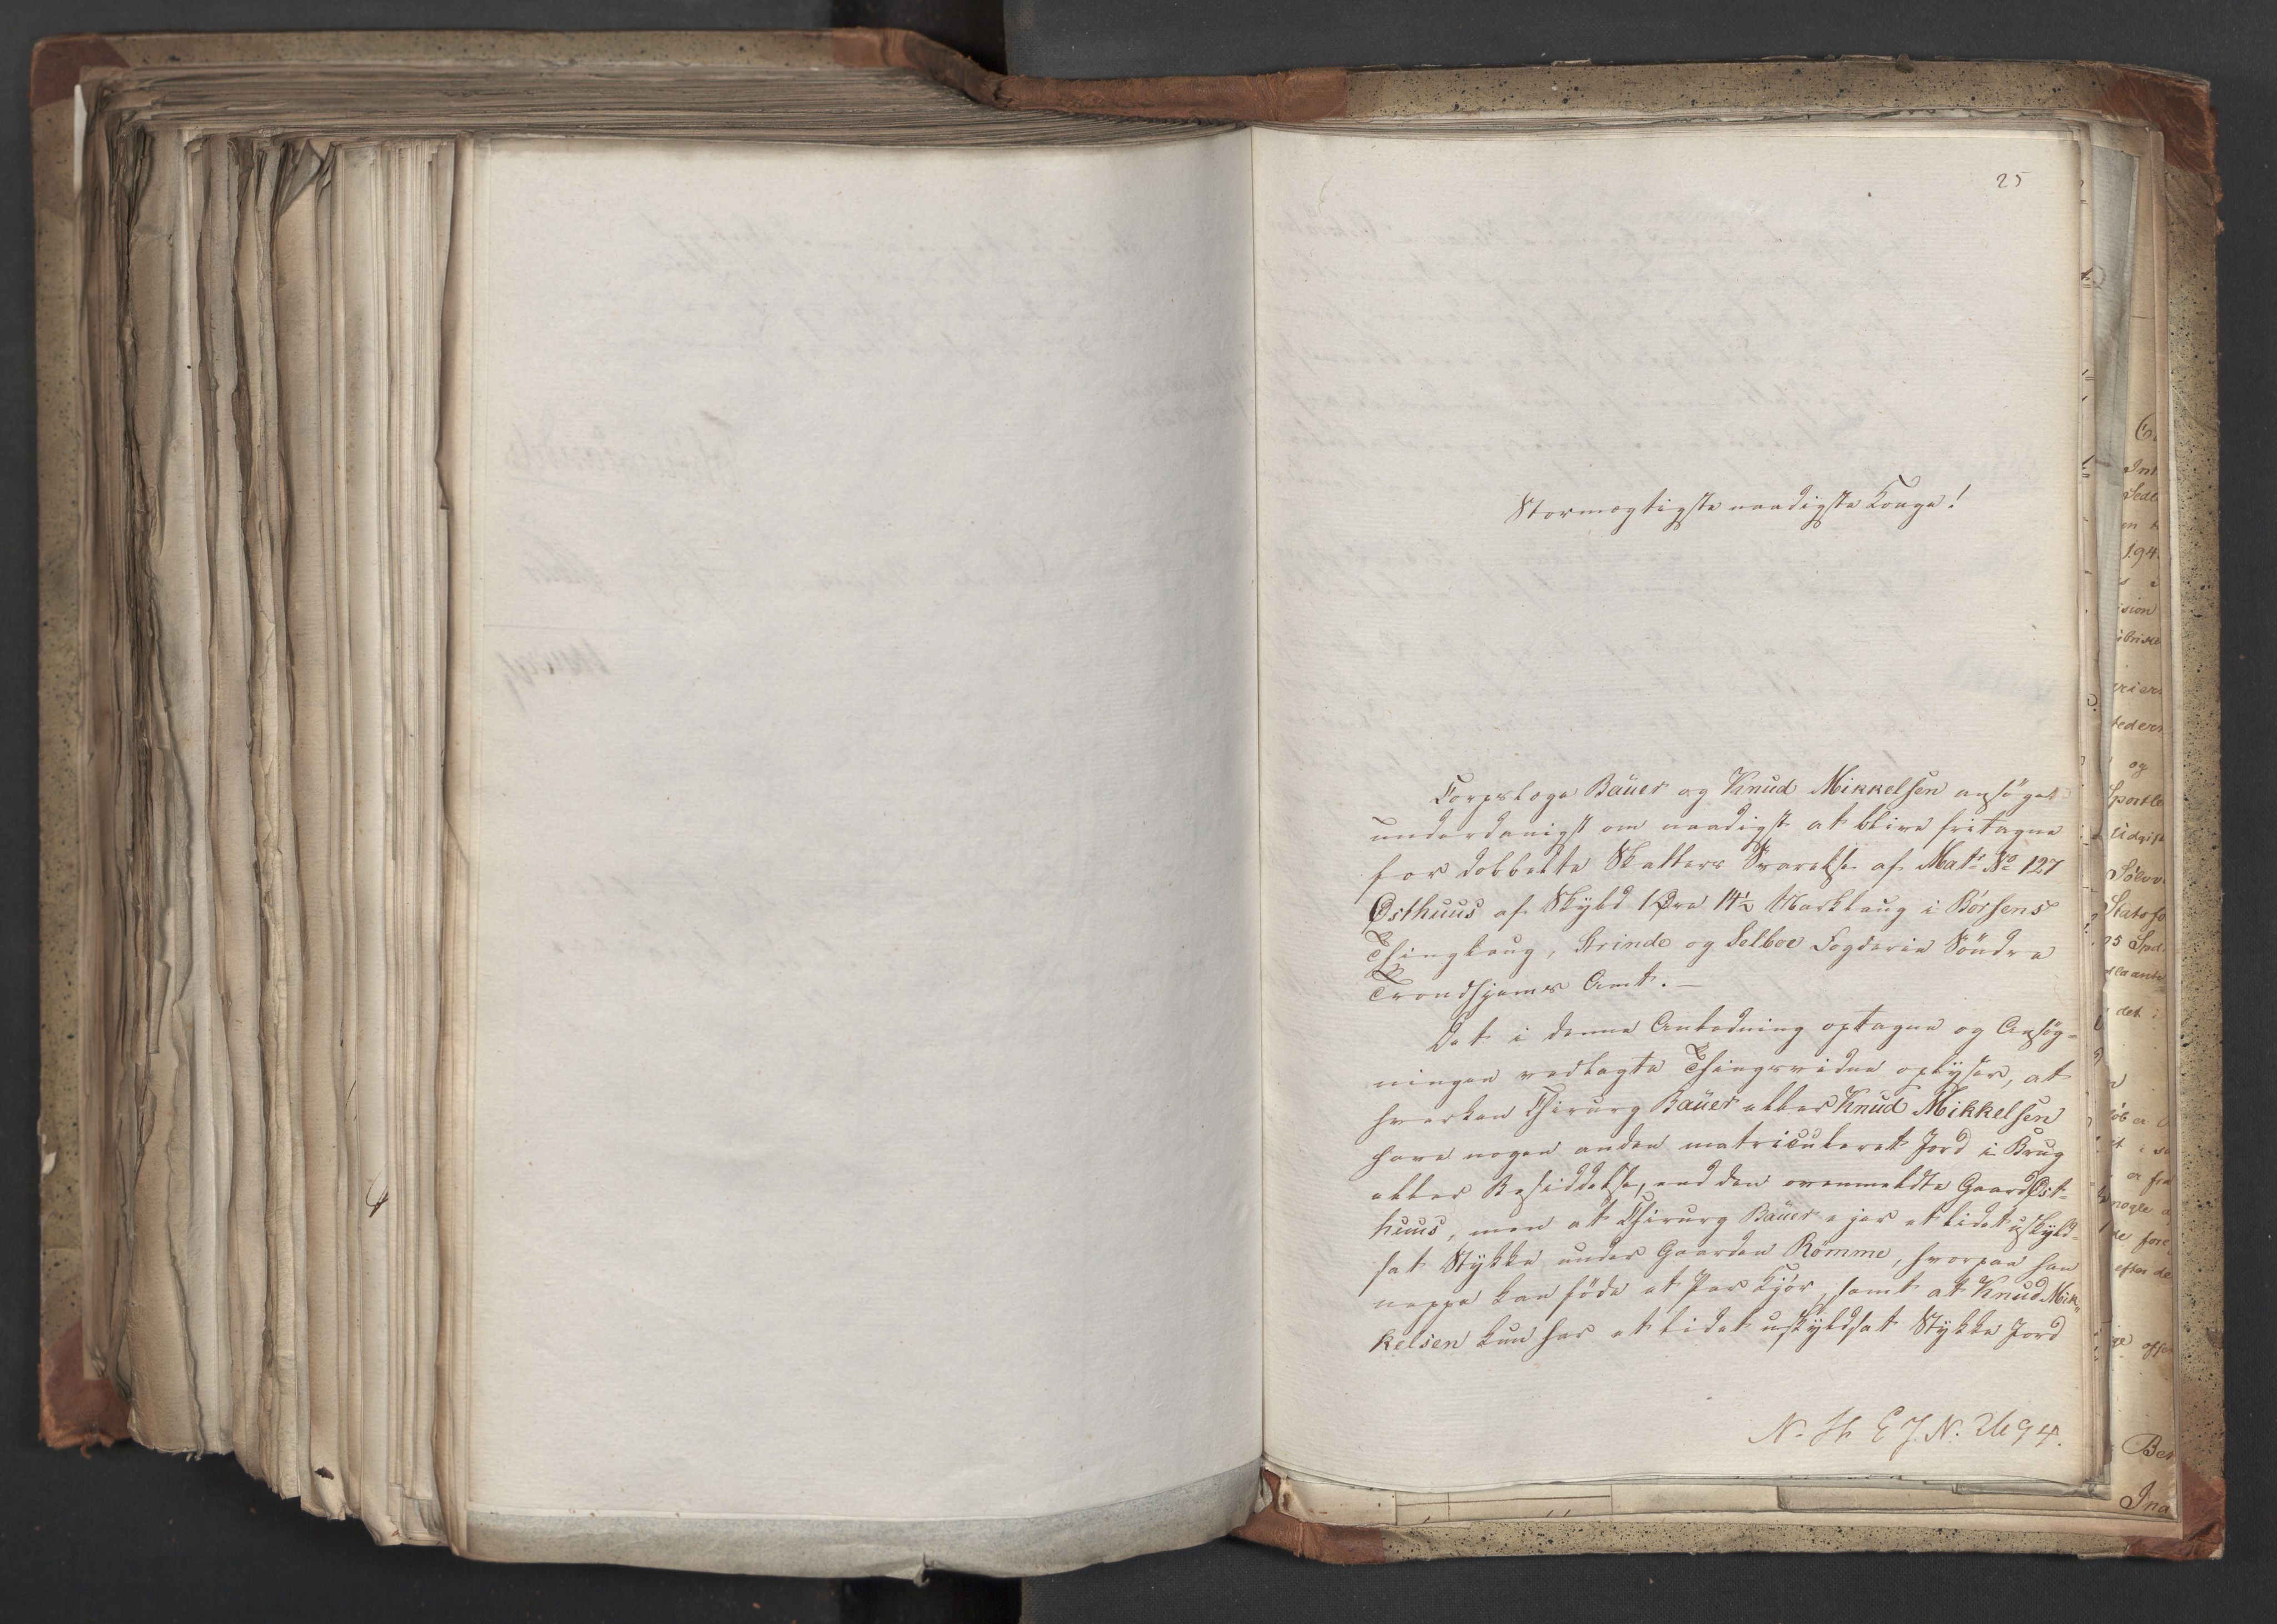 25
Stormægtigste naadigste Konge!
Corpslæge Baüer og Knud Mikkelsen ansøger
underdanigst om naadigst at blive fritagne
for dobbelte Skatters Svarelse af Mat: No 127
Østhuus af Skyld 1 Øre 14½ Marklaug i Børsens
Thinglaug, Strinde og Selboe Fogderie Söndre
Trondhjems Amt. –
Det i denne Anledning optagne og Ansøg-
ningen vedlagte Thingsvidne oplyser, at
hverken Chirurg Baüer eller Knud Mikkelsen
have nogen anden matriculeret Jord i Brug
eller Besiddelse, end den ovenmeldte Gaard Øst-
huus, men at Chirurg Baüer ejer et lidet uskyld-
sat Stykke under Gaarden Römme, hvorpaa han
neppe kan föde et Par Kjör, samt at Knud Mik-
kelsen kun har et lidet uskyldsat Stykke Jord